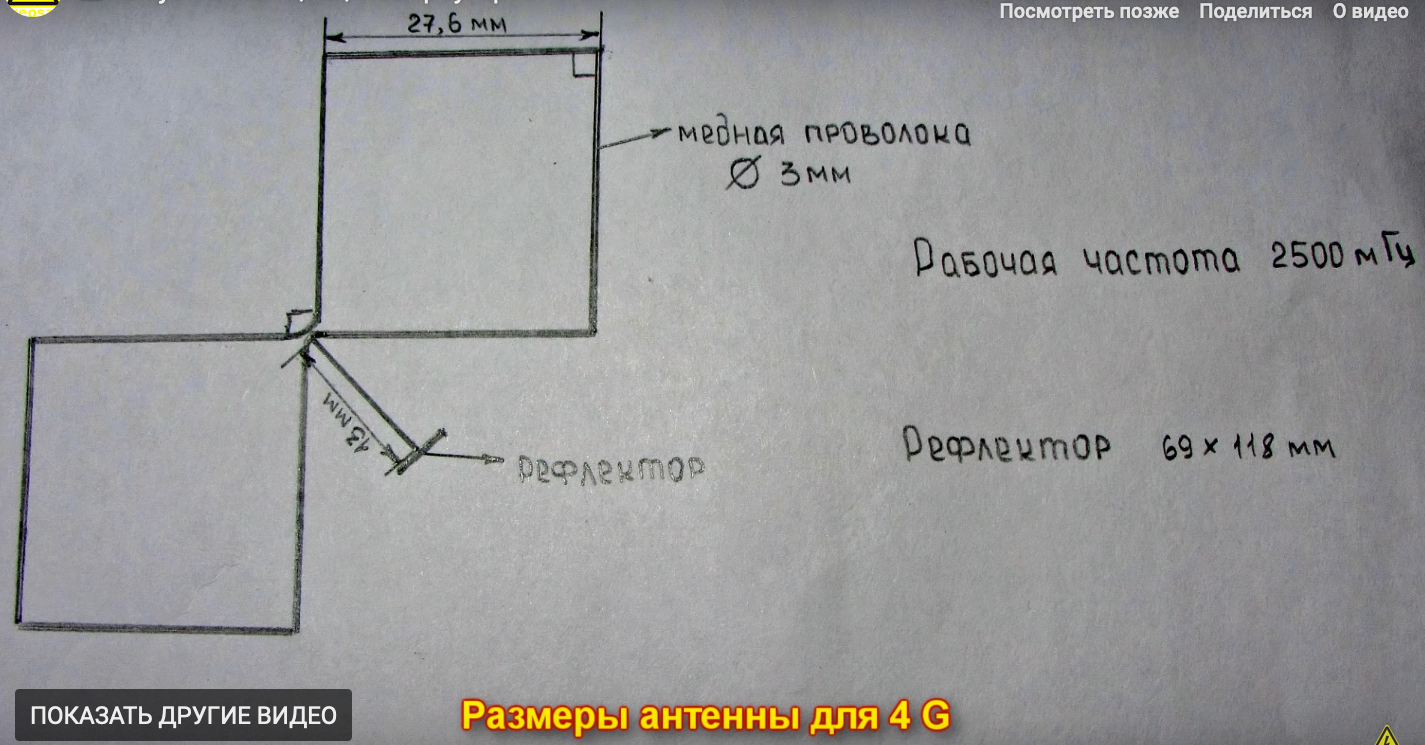 Посмотреть позже Поделиться О видео
27,6 мм
медная проволока
Ø 3мм
Рабочая частота 2500 мГц
13 мм
рефлектор
Рефлектор 69 × 118 мм
ПОКАЗАТЬ ДРУГИЕ ВИДЕО
Размеры антенны для 4 G